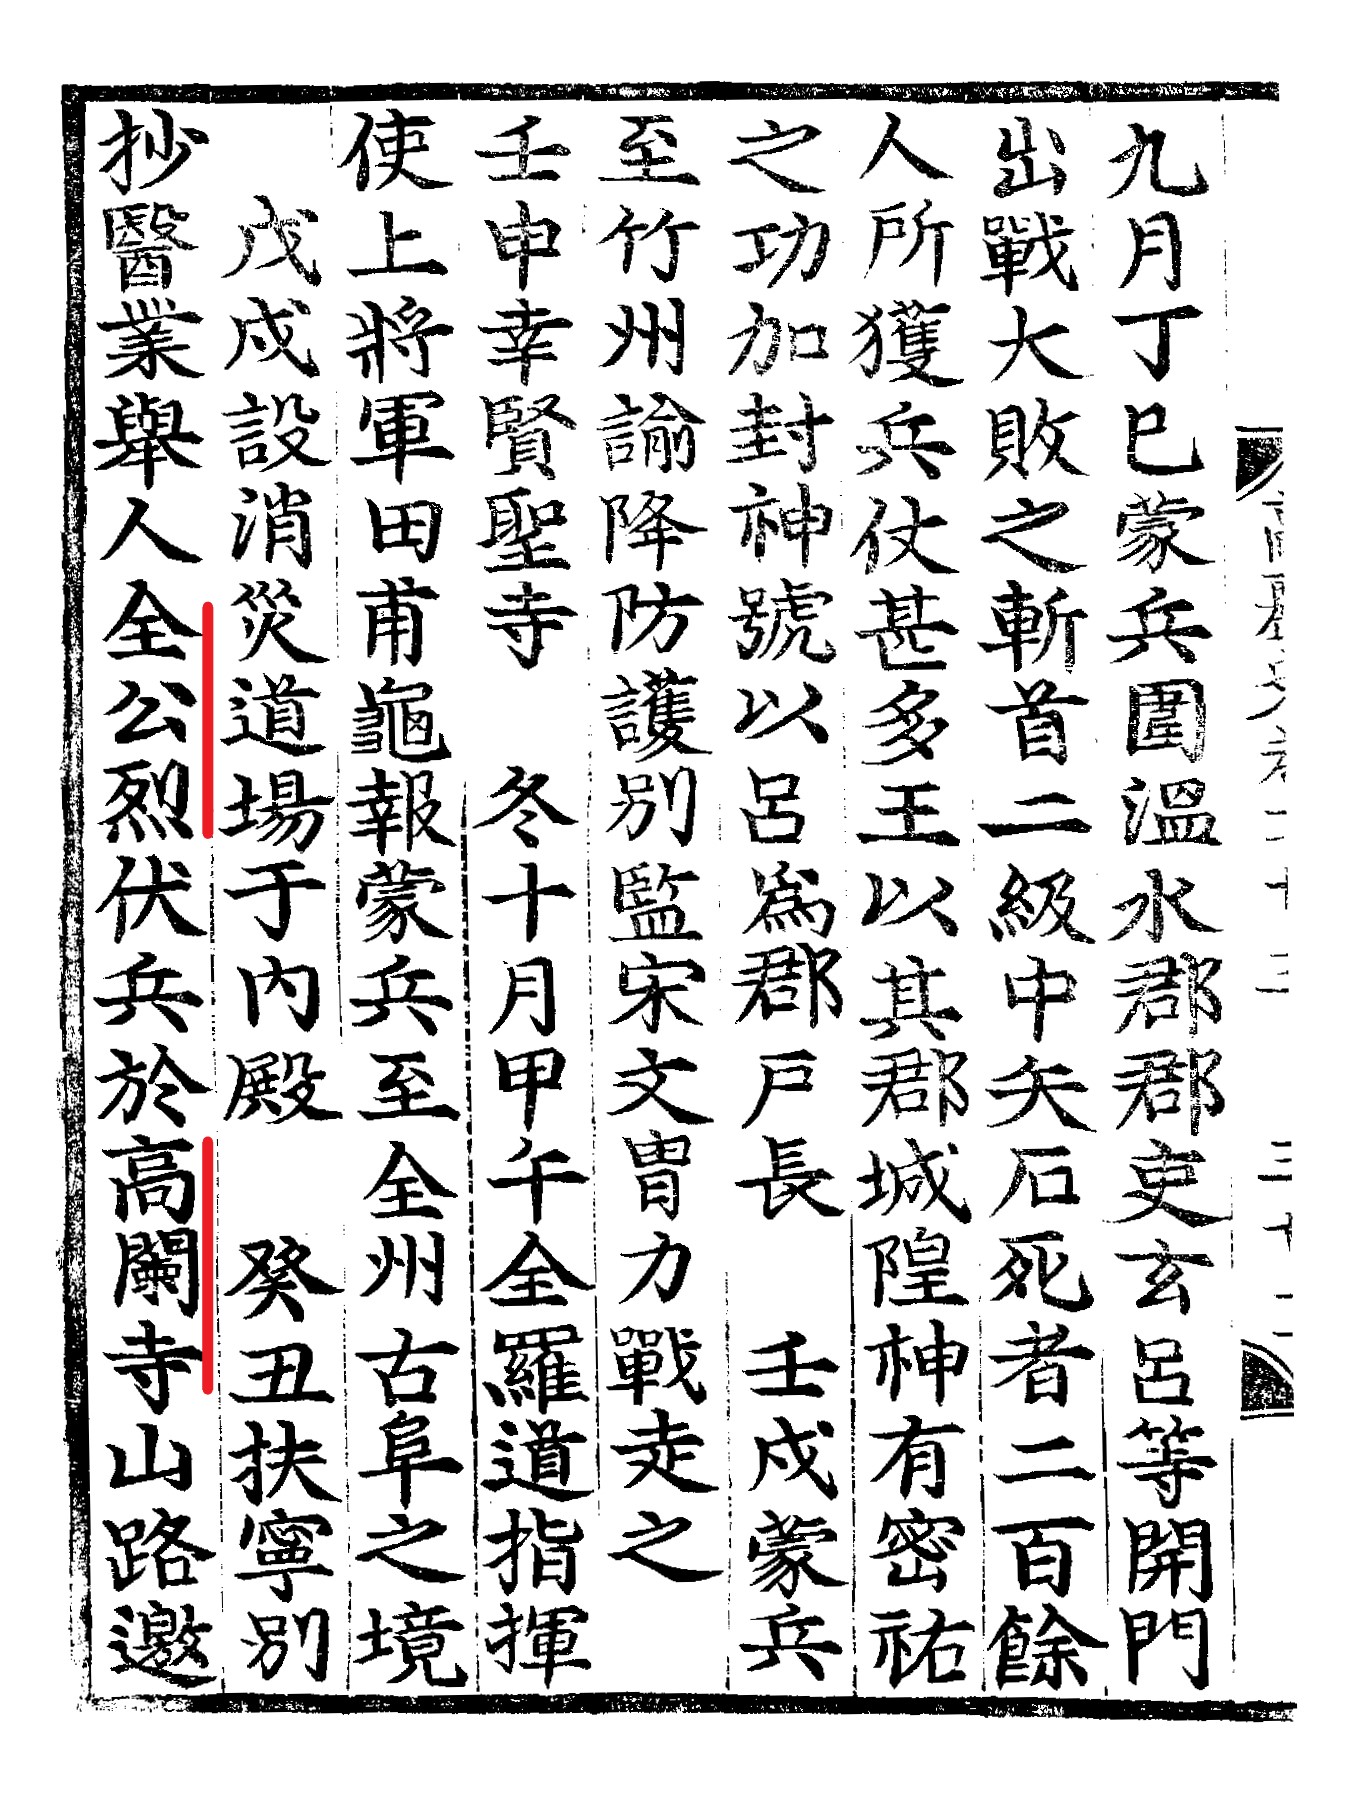 九月丁巳蒙兵圍溫水郡郡吏玄呂等開門
出戰大敗之斬首二級中矢石死者二百餘
人所獲兵仗甚多王以其郡城隍神有密祐
之功加封神號以呂爲郡戶長　壬戌蒙兵
至竹州諭降防護別監宋文冑力戰走之
壬申幸賢聖寺　冬十月甲午全羅道指揮
使上將軍田甫龜報蒙兵至全州古阜之境
戊戌設消災道場于內殿　癸丑扶寧別
抄醫業舉人全公烈伏兵於高闌寺山路邀